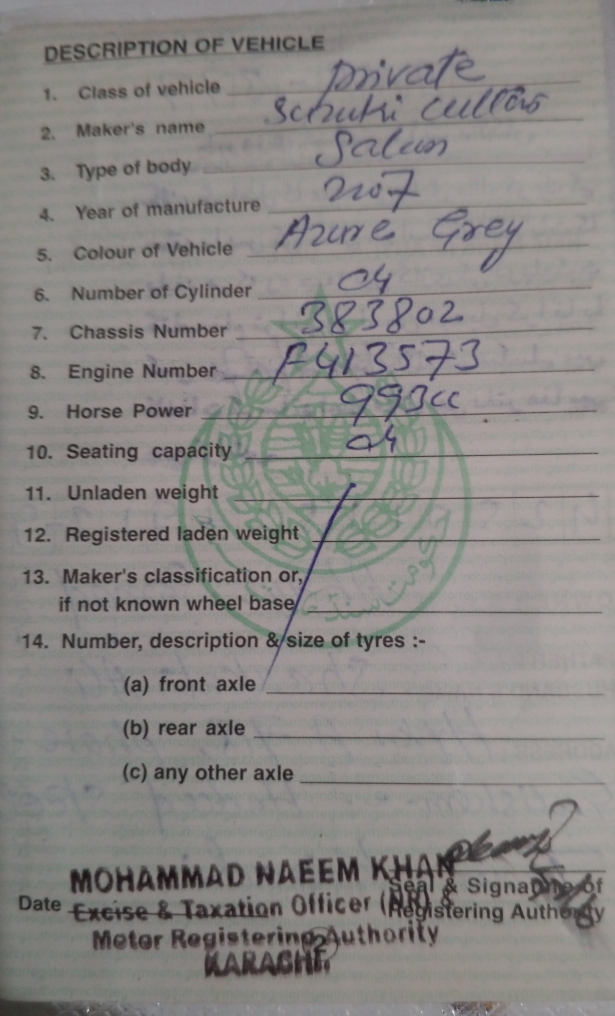 DESCRIPTION OF VEHICLE
1. Class of vehicle Private
2. Maker's name Suzuki Cultus
3. Type of body Salun
4. Year of manufacture 2007
5. Colour of Vehicle Azure Grey
6. Number of Cylinder 04
7. Chassis Number 383802
8. Engine Number F413573
9. Horse Power 993cc
10. Seating capacity 04
11. Unladen weight
12. Registered laden weight
13. Maker's classification or,
if not known wheel base
14. Number, description & size of tyres :-
(a) front axle
(b) rear axle
(c) any other axle
MOHAMMAD NAEEM KHAN
Seal & Signature of
Date Excise & Taxation Officer (NR) &
Registering Authority
Motor Registering Authority
KARACHI.
حکومت سندھ